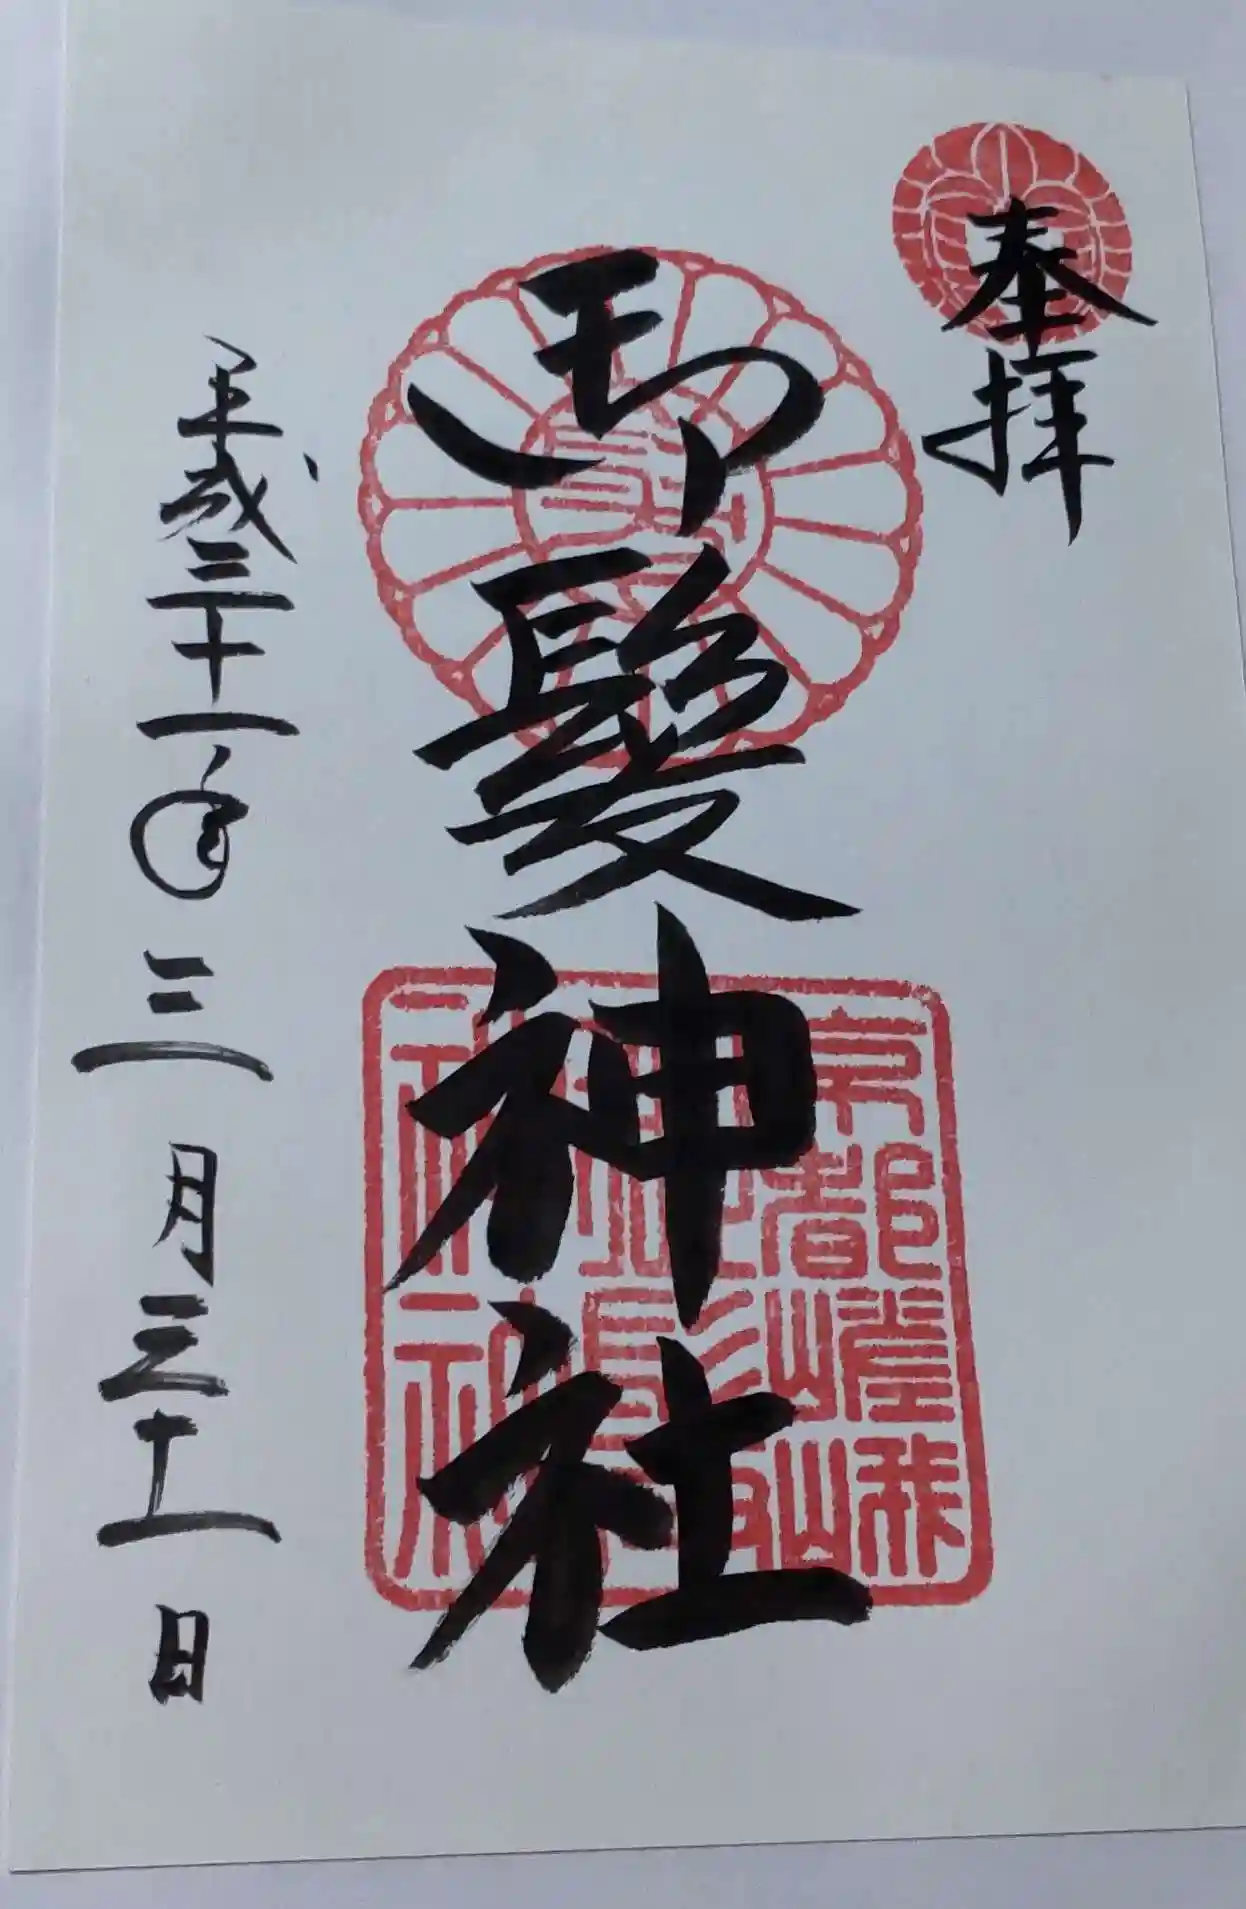 奉拝
御髪神社
京都嵯峨
御髪
神社
平成三十一年三月三十一日